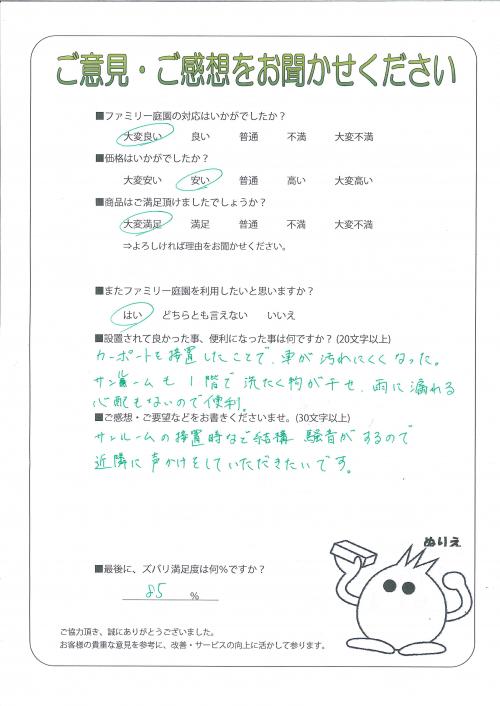 ご意見・ご感想をお聞かせください
■ファミリー庭園の対応はいかがでしたか？
大変良い　良い　普通　不満　大変不満
■価格はいかがでしたか？
大変安い　安い　普通　高い　大変高い
■商品はご満足頂けましたでしょうか？
大変満足　満足　普通　不満　大変不満
⇒よろしければ理由をお聞かせください。
■またファミリー庭園を利用したいと思いますか？
はい　どちらとも言えない　いいえ
■設置されて良かった事、便利になった事は何ですか？(20文字以上)
カーポートを設置したことで、車が汚れにくくなった。
サンルームも１階で洗たく物が干せ、雨に濡れる
心配もないので便利。
■ご感想・ご要望などをお書きくださいませ。(30文字以上)
サンルームの設置時など結構騒音がするので
近隣に声かけをしていただきたいです。
ぬりえ
■最後に、ズバリ満足度は何％ですか？
85　％
ご協力頂き、誠にありがとうございました。
お客様の貴重な意見を参考に、改善・サービスの向上に活かして参ります。